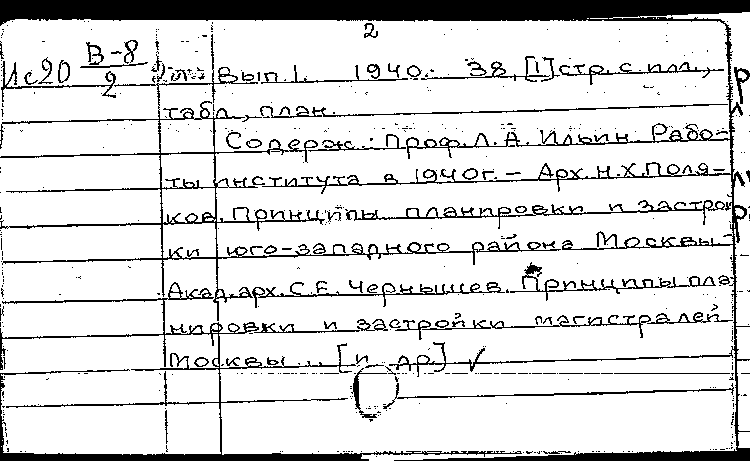 2
Ис20 В-8/2 Вып. 1. 1940. 38, [1] стр. с илл.,
табл., план.
Содерж.: Проф. Л. А. Ильин. Рабо-
ты института в 1940г. – Арх. Н. Х. Поля-
ков. Принципы планировки и застрой
ки юго-западного района Москвы. –
Акад. арх. С. Е. Чернышев. Принципы пла
нировки и застройки магистралей
Москвы... [и др.] ✓